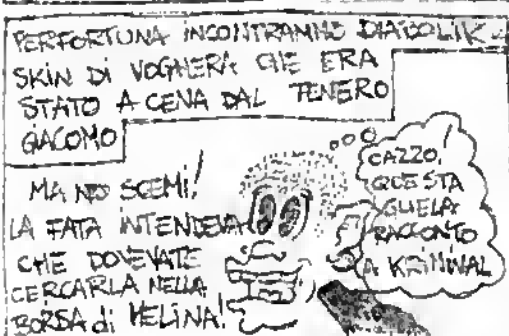 PERFORTUNA INCONTRAMMO DIABOLIK
SKIN DI VOGHERA CHE ERA
STATO A CENA DAL TENERO
GIACOMO
MA NO SCEMI!
LA FATA INTENDEVA
CHE DOVEVATE
CERCARLA NELLA
BORSA di MELINA!
CAZZO,
QUESTA
GUELA
RACCONTO
A KRIMINAL